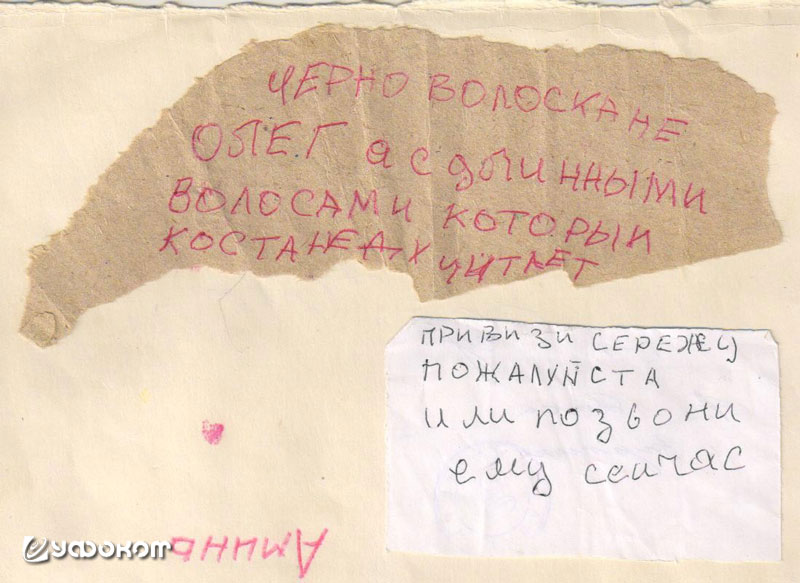 ЧЕРНО ВОЛОСКАНЕ
ОЛЕГ а с длинными
ВОЛОСАМИ КОТОРЫИ
ЧИТАЕТ
ПРИВИЗИ СЕРЕЖУ
ПОЖАЛУЙСТА
или позвони
ему сеичас
Аминь
УФОКОМ